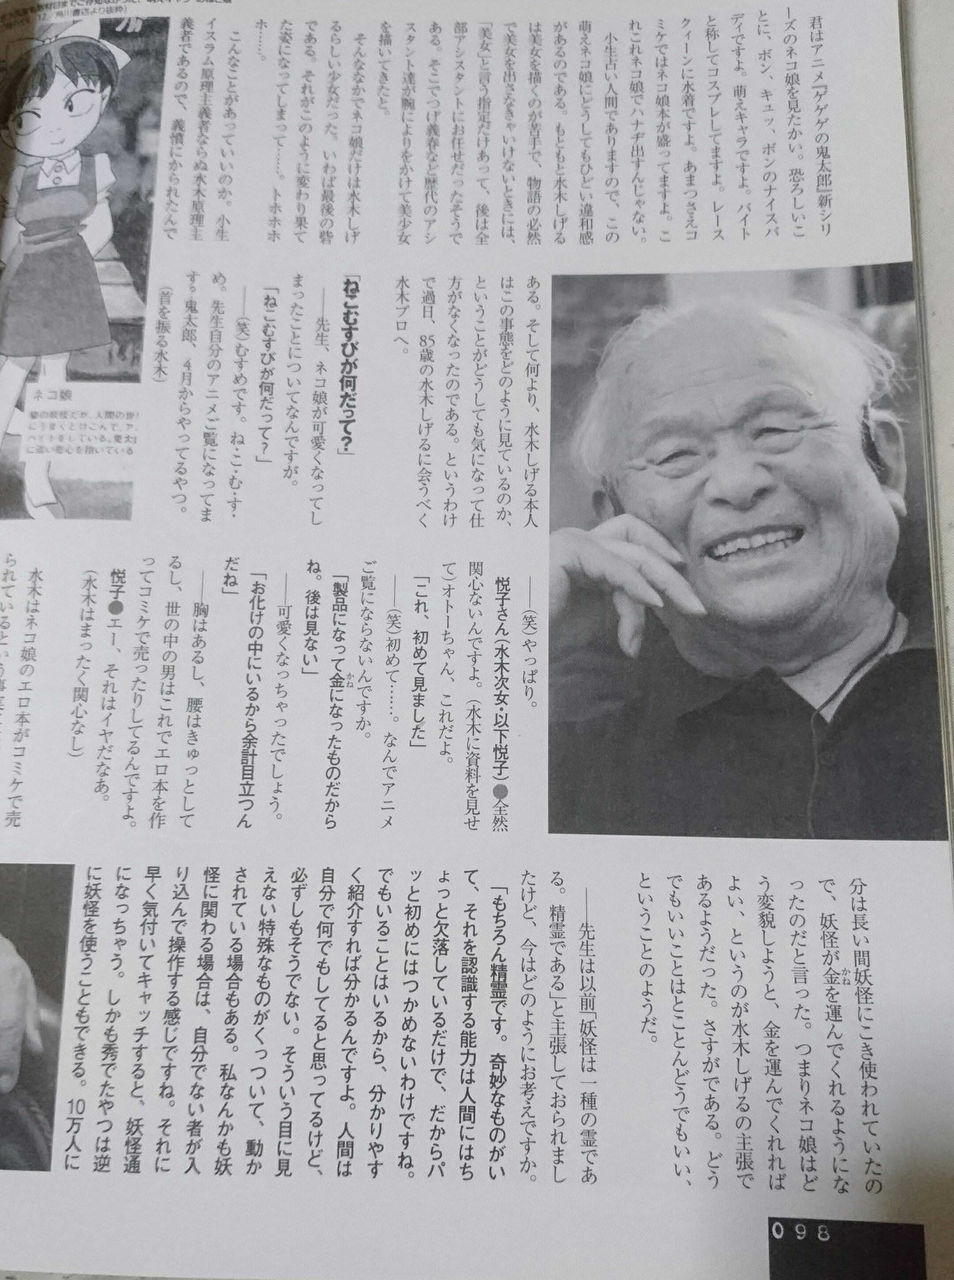 君はアニメ『ゲゲゲの鬼太郎』新シリ
ーズのネコ娘を見たかい。恐ろしいこ
とに、ボン、キュッ、ボンのナイスバ
ディですよ。萌えキャラですよ。バイト
と称してコスプレしてますよ。レース
クィーンに水着ですよ。あまつさえコ
ミケではネコ娘本が盛ってますよ。こ
れこれネコ娘でハナヂ出すんじゃない。
小生古い人間でありますので、この
萌えネコ娘にどうしてもひどい違和感
があるのである。もともと水木しげる
は美女を描くのが苦手で、物語の必然
で美女を出さなきゃいけないときには、
「美女」と言う指定だけあって、後は全
部アシスタントにお任せだったそうで
ある。そこでつげ義春など歴代のアシ
スタント達が腕によりをかけて美少女
を描いてきたと。
そんななかでネコ娘だけは水木しげ
るらしい少女だった。いわば最後の砦
である。それがこのように変わり果て
た姿になってしまって……。トホホホ
ホ……。
こんなことがあっていいのか。小生
イスラム原理主義者ならぬ水木原理主
義者であるので、義憤にかられたんで
ある。そして何より、水木しげる本人
はこの事態をどのように見ているのか、
ということがどうしても気になって仕
方がなくなったのである。というわけ
で過日、85歳の水木しげるに会うべく
水木プロへ。
「ねこむすびが何だって?」
——先生、ネコ娘が可愛くなってし
まったことについてなんですが。
「ねこむすびが何だって?」
——(笑)むすめです。ね・こ・む・す・
め。先生自分のアニメご覧になってま
す?鬼太郎、4月からやってるやつ。
(首を振る水木)
ネコ娘
——(笑)やっぱり。
悦子さん(水木次女・以下悦子)●全然
関心ないんですよ。(水木に資料を見せ
て)オトーちゃん、これだよ。
「これ、初めて見ました」
——(笑)初めて……。なんでアニメ
ご覧にならないんですか。
「製品になって金になったものだから
かね
ね。後は見ない」
——可愛くなっちゃったでしょう。
「お化けの中にいるから余計目立つん
だね」
——胸はあるし、腰はきゅっとして
るし、世の中の男はこれでエロ本を作
ってコミケで売ったりしてるんですよ。
悦子●エー、それはイヤだなあ。
(水木はまったく関心なし)
水木はネコ娘のエロ本がコミケで売
られているという事実
分は長い間妖怪にこき使われていたの
で、妖怪が金を運んでくれるようにな
かね
ったのだと言った。つまりネコ娘はど
う変貌しようと、金を運んでくれれば
よい、というのが水木しげるの主張で
あるようだった。さすがである。どう
でもいいことはとことんどうでもいい、
ということのようだ。
——先生は以前「妖怪は一種の霊であ
る。精霊である」と主張しておられまし
たけど、今はどのようにお考えですか。
「もちろん精霊です。奇妙なものがい
て、それを認識する能力は人間にはち
ょっと欠落しているだけで、だからパ
ッと初めにはつかめないわけですね。
でもいることはいるから、分かりやす
く紹介すれば分かるんですよ。人間は
自分で何でもしてると思ってるけど、
必ずしもそうでない。そういう目に見
えない特殊なものがくっついて、動か
されている場合もある。私なんかも妖
怪に関わる場合は、自分でない者が入
り込んで操作する感じですね。それに
早く気付いてキャッチすると、妖怪通
になっちゃう。しかも秀でたやつは逆
に妖怪を使うこともできる。10万人に
098